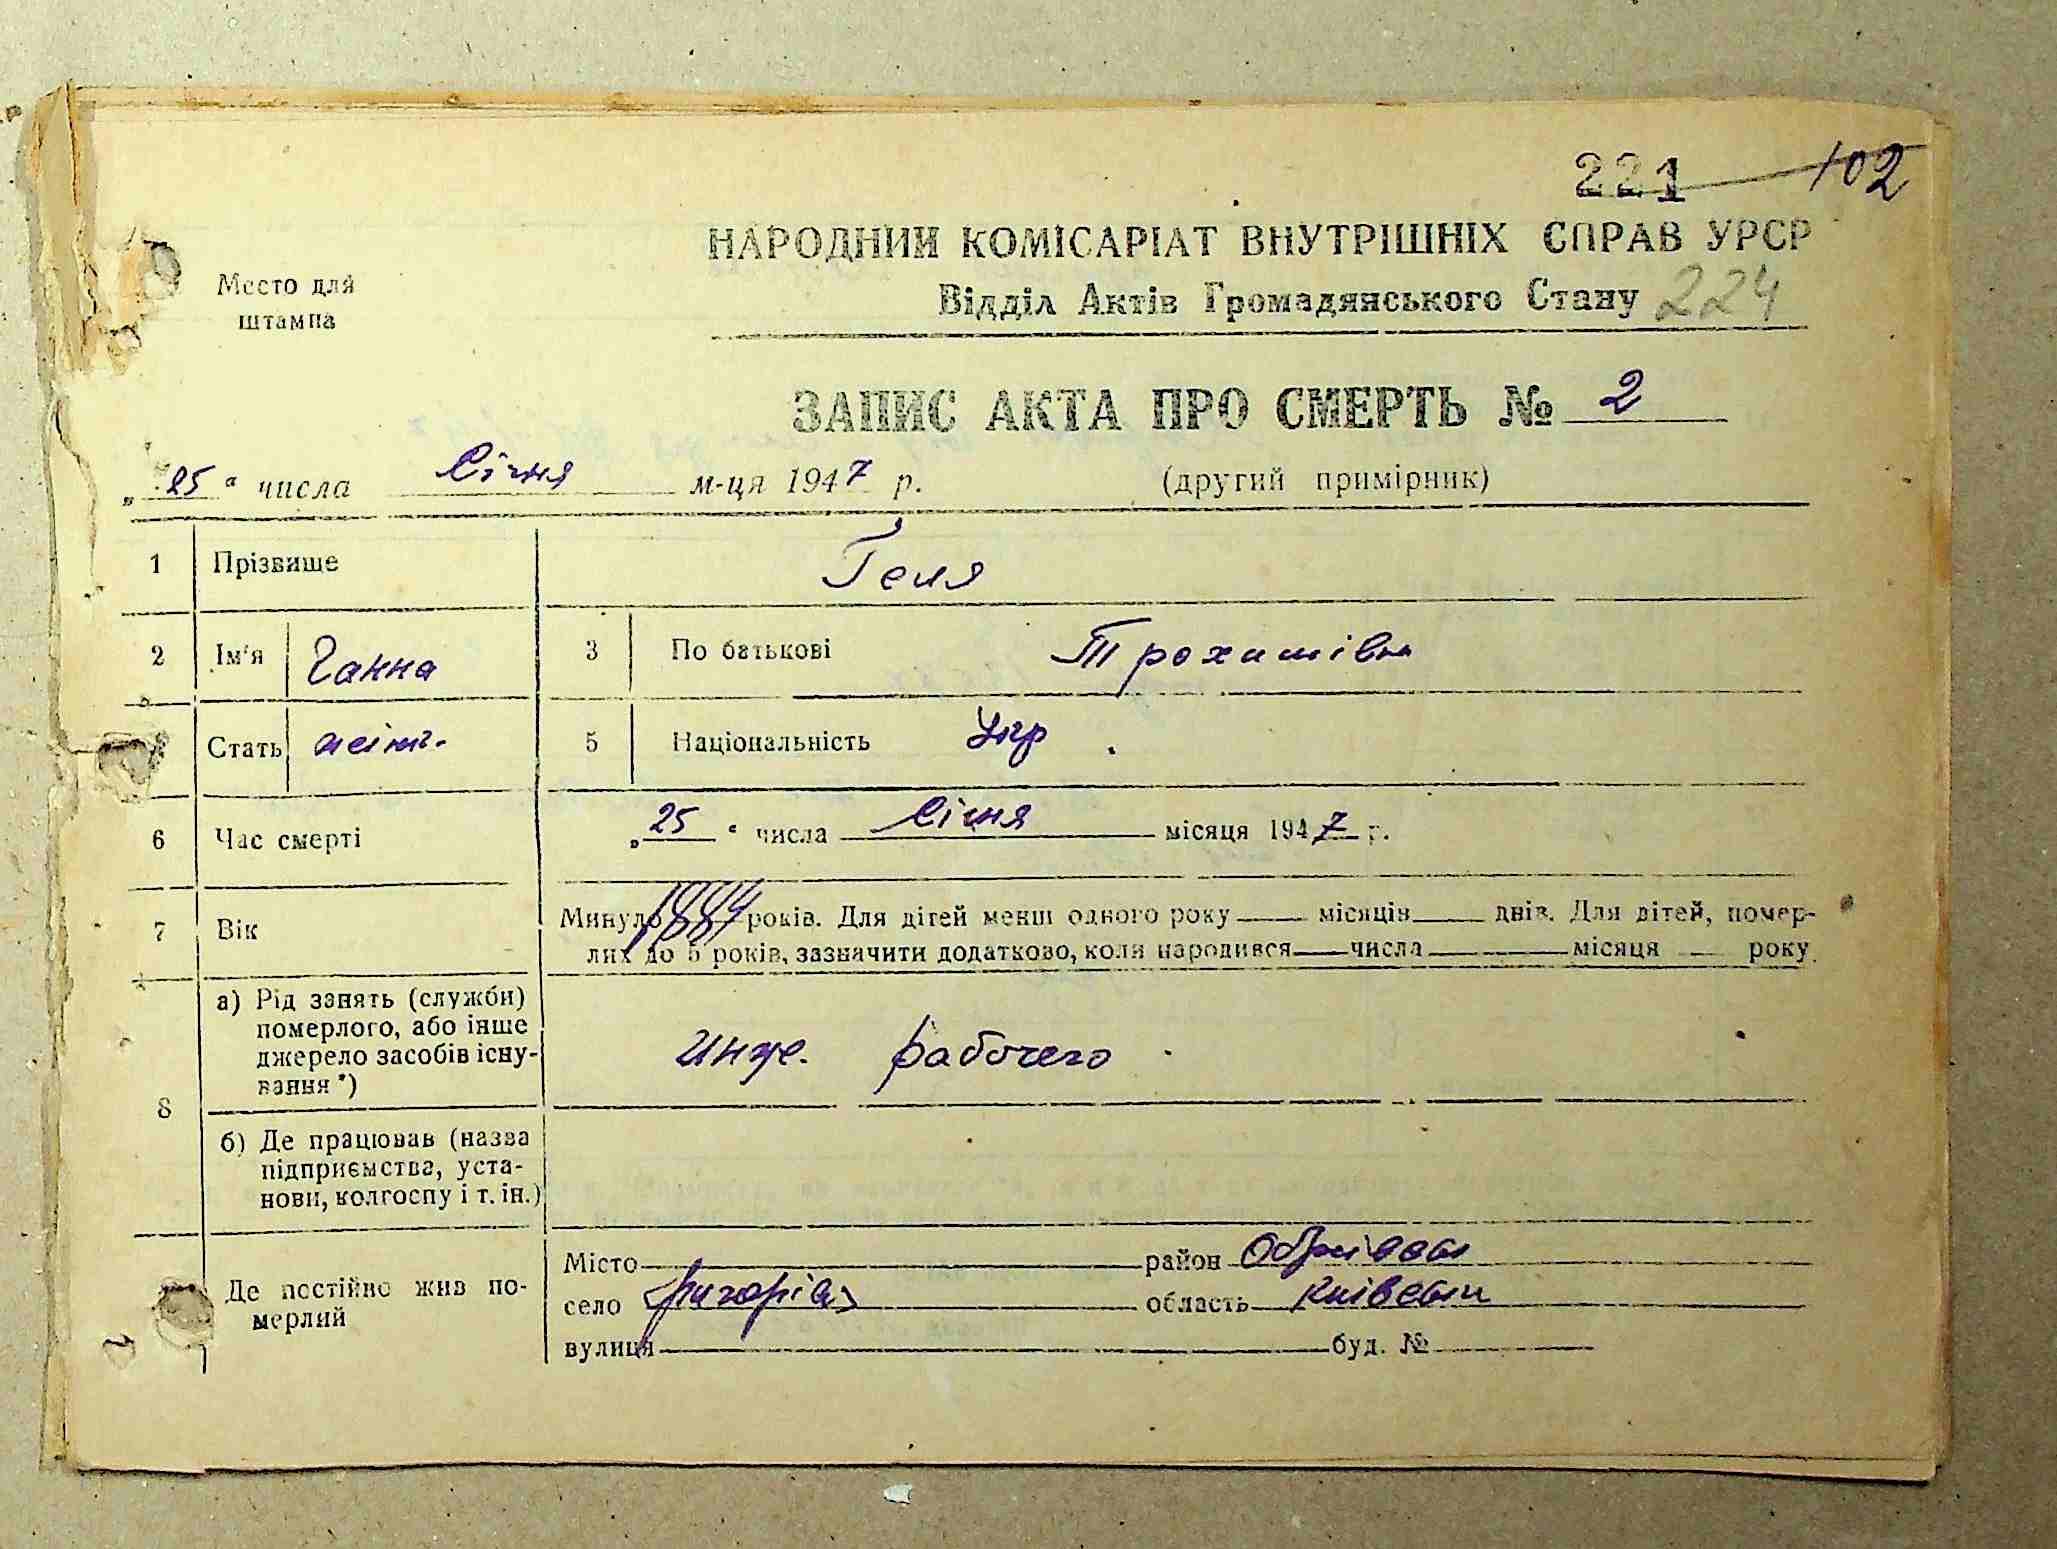 221 102
НАРОДНИЙ КОМІСАРІАТ ВНУТРІШНІХ СПРАВ УРСР
Место для
штампа
Відділ Актів Громадянського Стану 224
ЗАПИС АКТА ПРО СМЕРТЬ № 2
„25“ числа Січня м-ця 1947 р. (другий примірник)
1 Прізвище Геля
2 Ім'я Ганна 3 По батькові Трохимівн
Стать жіноч. 5 Національність Укр.
6 Час смерті „25“ числа Січня місяця 1947 р.
7 Вік Минуло 1884 років. Для дітей менш одного року — місяців — днів. Для дітей, помер-
лих до 5 років, зазначити додатково, коли народився — числа — місяця — року.
8 а) Рід занять (служби)
померлого, або інше
джерело засобів існу-
вання *) Ижде. рабочего
б) Де працював (назва
підприємства, уста-
нови, колгоспу і т. ін.)
Де постійно жив по-
мерлий
Місто район
село Григорів область Київськ
вулиця буд. №